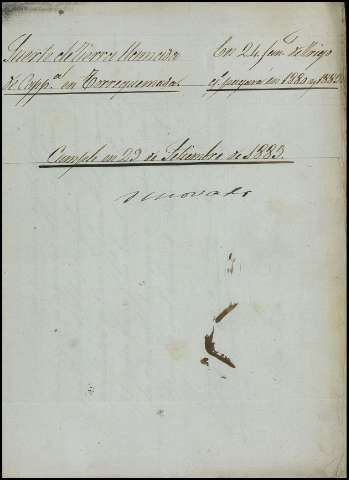 Suerte de Tierra
de Capp.ª en Torrequemada.
En 24 fan.s de trigo
q.e pagará en 1880 y 1883
Cumple en 29 de Setiembre de 1883.
renovado